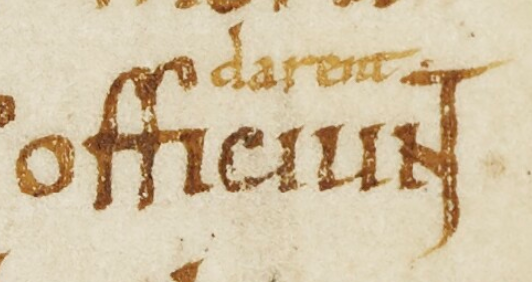 darent
officiunt